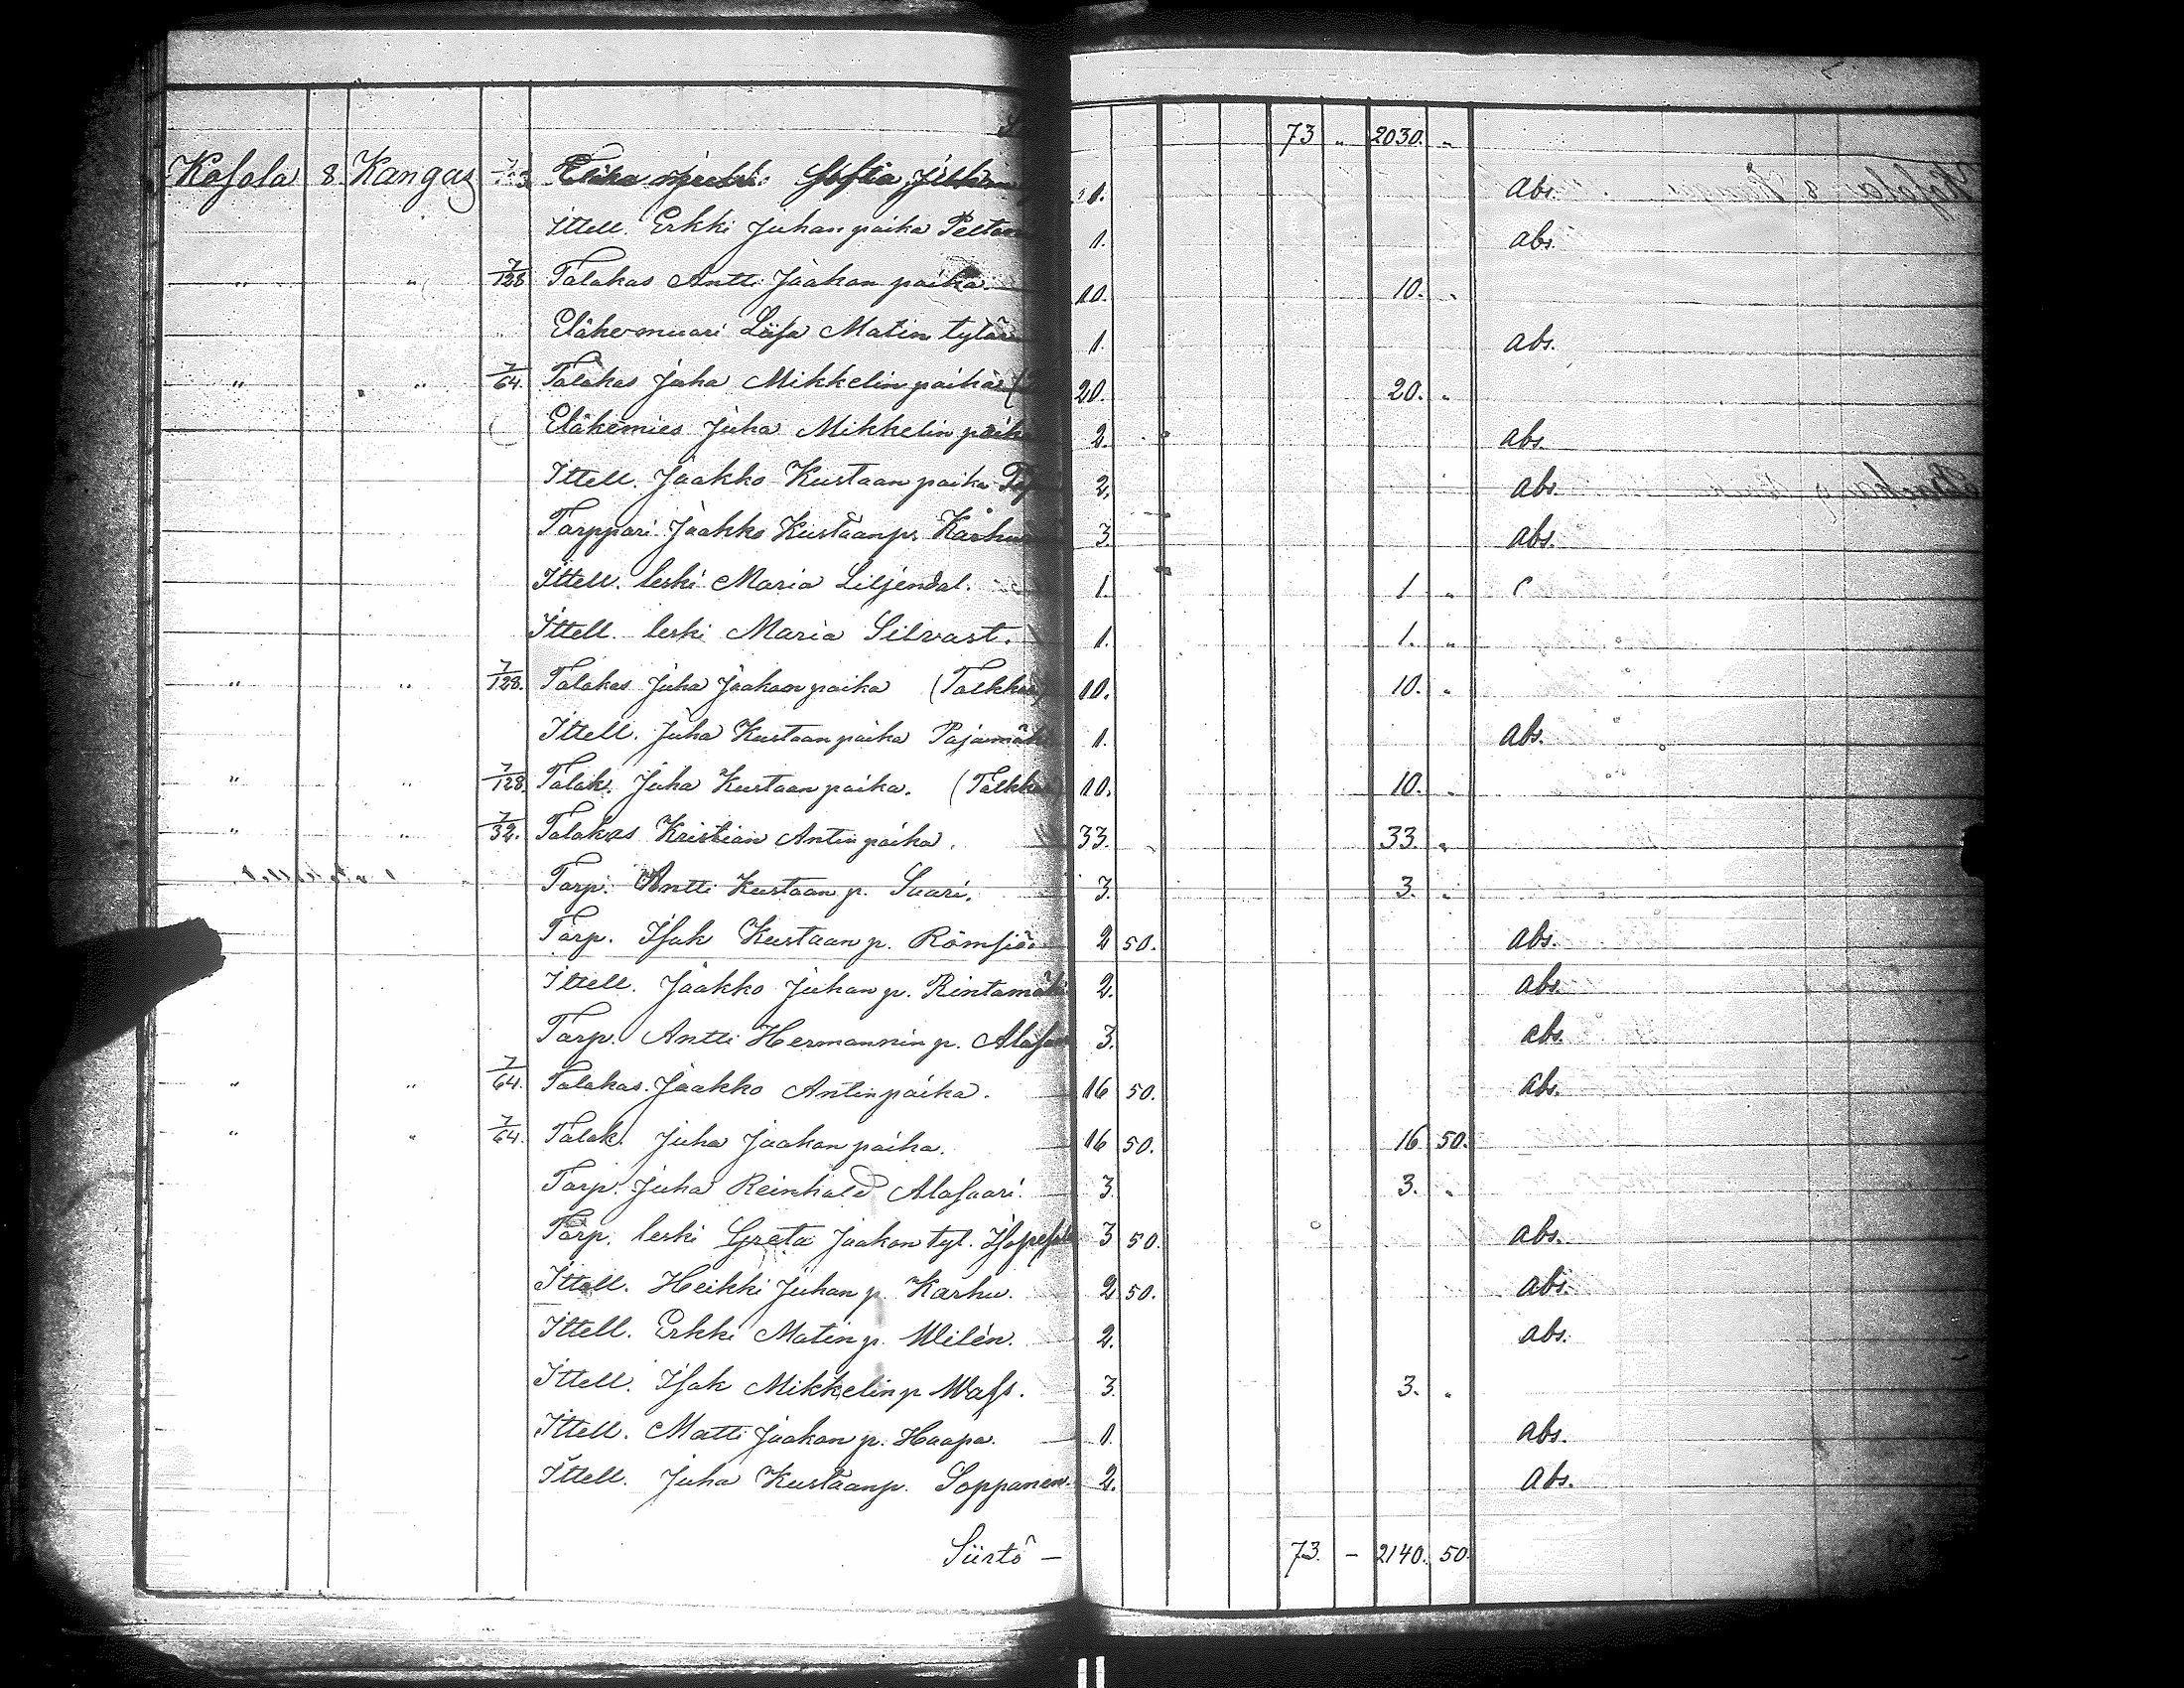 73 " 2030. "
Kosola 8 Kangas Sofia 1. abs.
Ittell. Erkki Juhan poika 1. abs.
" " 7/128 Talakas Antti Jaakon poika 10. 10. "
Eläkemuori Liisa Matin tytär 1. abs.
" " 7/64. Talakas Juha Mikkelin poika 20. 20. "
Eläkemies Juha Mikkelin poika 2. abs.
Ittell. Jaakko Kustaan poika 2. abs.
Torppari Jaakko Kustaanp. 3. abs.
Ittell. leski Maria Liljendal. 1. 1 "
Ittell. leski Maria Silvast. 1. 1. "
" " 7/128. Talakas Juha Jaakon poika 10. 10. "
Ittell. Juha Kustaan poika Pajamäki 1. abs.
" " 7/128. Talak. Juha Kustaan poika. 10. 10. "
" " 7/32. Talakas Kristian Antin poika. 33. 33. "
Torp. Antti Kustaan p. Saari. 3. 3. "
Torp. Isak Kustaan p. 2 50. abs.
Ittell. Jaakko Juhan p. Rintamäki 2. abs.
Torp. Antti Hermannin p. 3. abs.
" " 7/64. Talakas. Jaakko Antinpoika. 16 50. abs.
" " 7/64. Talak. Juha Jaakon poika. 16 50. 16 50.
Torp. Juha Reinhold Alasaari. 3. 3. "
Torp. leski Greta Jaakon tyt. 3 50. abs.
Ittell. Heikki Juhan p. Karhu. 2 50. abs.
Ittell. Erkki Matin p. Wilén. 2. abs.
Ittell. Isak Mikkelin p. Wass. 3. 3. "
Ittell. Matti Jaakon p. Haapa. 1. abs.
Ittell. Juha Kustaanp. Soppanen. 2. abs.
Siirtö - 73. - 2140. 50.